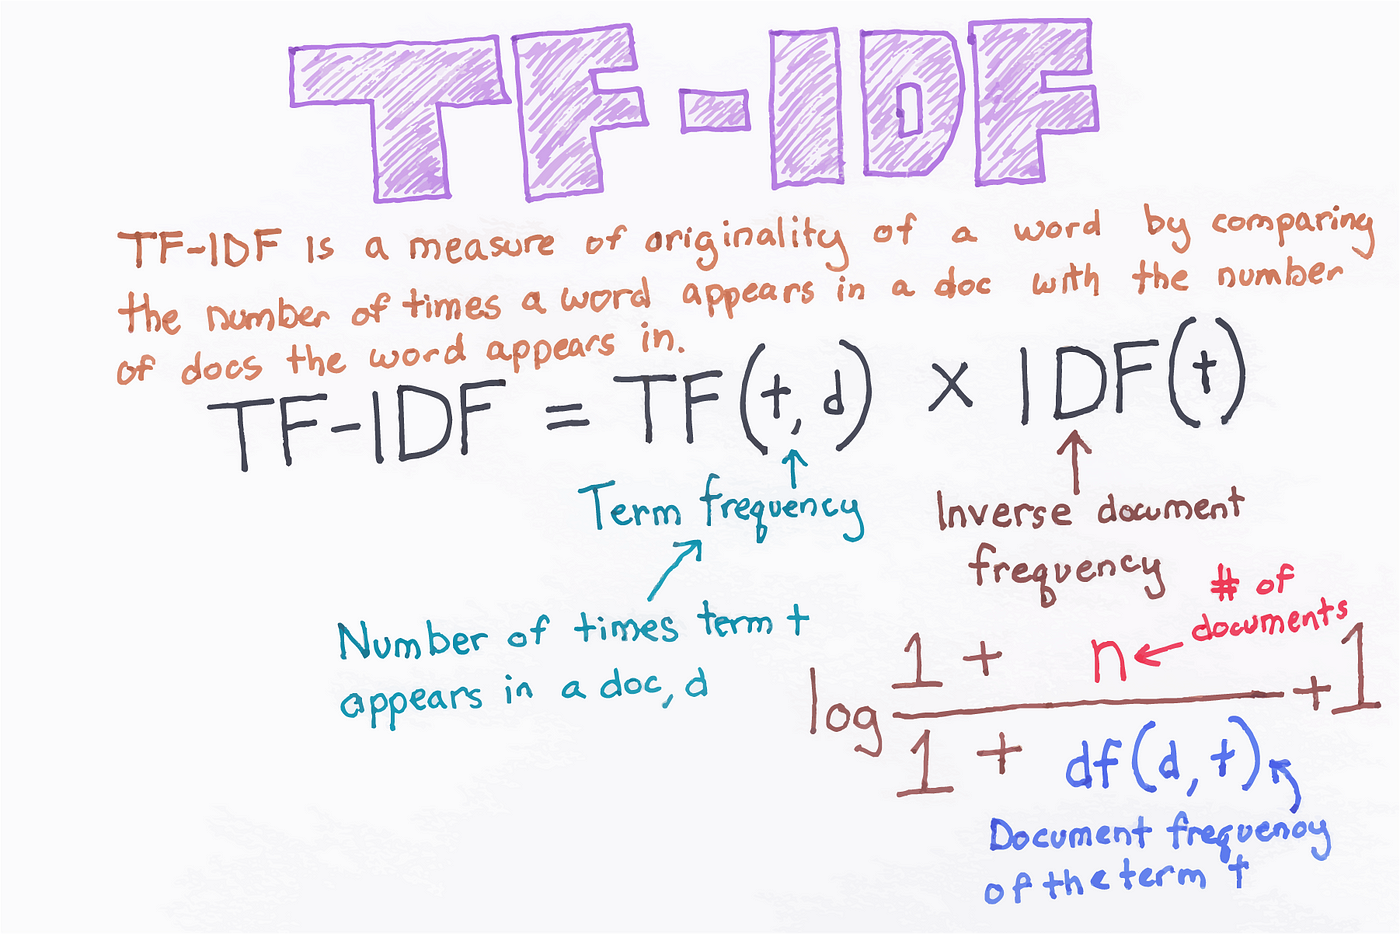 TF-IDF
TF-IDF is a measure of originality of a word by comparing
the number of times a word appears in a doc with the number
of docs the word appears in.
TF-IDF = TF(t, d) x IDF(t)
Term frequency
Inverse document
frequency
Number of times term t
appears in a doc, d
# of
documents
1 + n
log + 1
1 + df(d, t)
Document frequency
of the term t